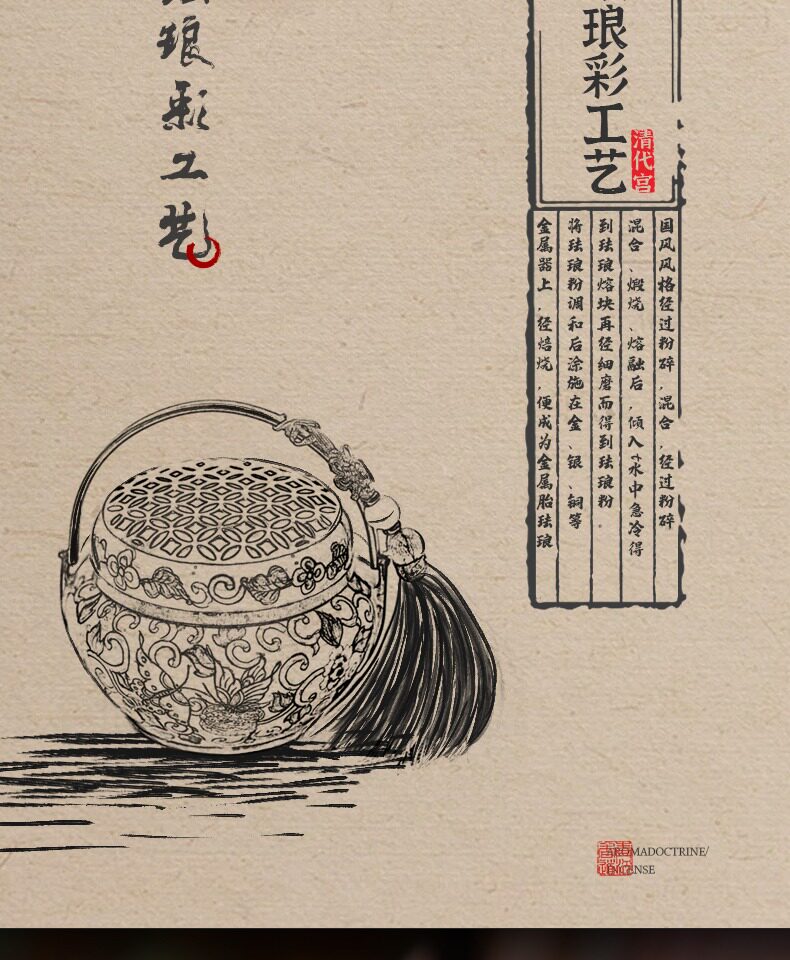 琅彩工艺
琅彩工艺
清代宫
国风风格经过粉碎，混合，经过粉碎
混合、煅烧、熔融后，倾入水中急冷得
到珐琅熔块再经细磨而得到珐琅粉。
将珐琅粉调和后涂施在金、银、铜等
金属器上，经焙烧，便成为金属胎珐琅
AROMADOCTRINE/
INCENSE